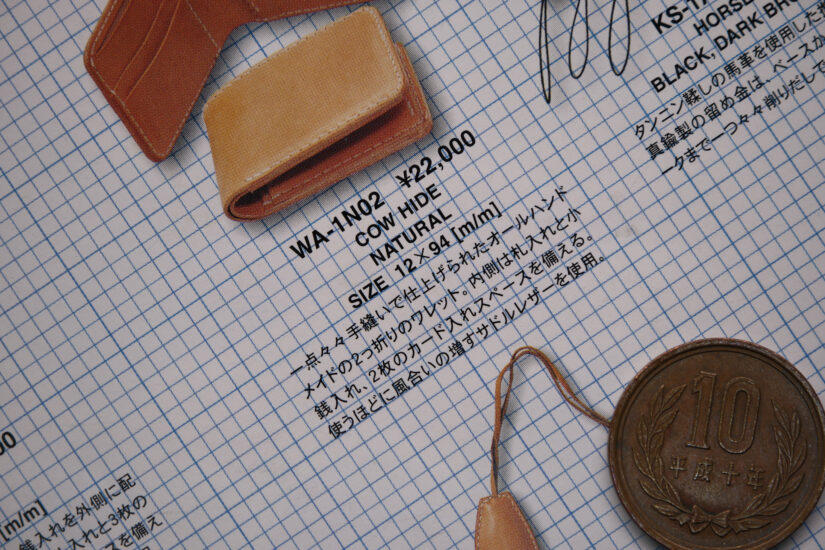 KS-17
HORSE
BLACK, DARK BRO
タンニン鞣しの馬革を使用した
真鍮製の留め金は、ベースか
ークまで一つ々々削りだしで
WA-1N02 ¥22,000
COW HIDE
NATURAL
SIZE 12×94 [m/m]
一点々々手縫いで仕上げられたオールハンド
メイドの2つ折りのワレット。内側は札入れと小
銭入れ、2枚のカード入れスペースを備える。
使うほどに風合いの増すサドルレザーを使用。
00
[m/m]
銭入れを外側に配
入れと3枚の
スペースを備え
10
平成十年